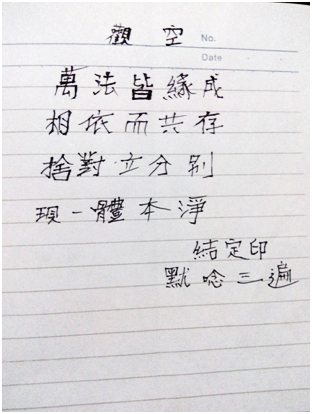 觀空
No.
Date
萬法皆緣成
相依而共存
捨對立分別
現一體本淨
結定印
默唸三遍